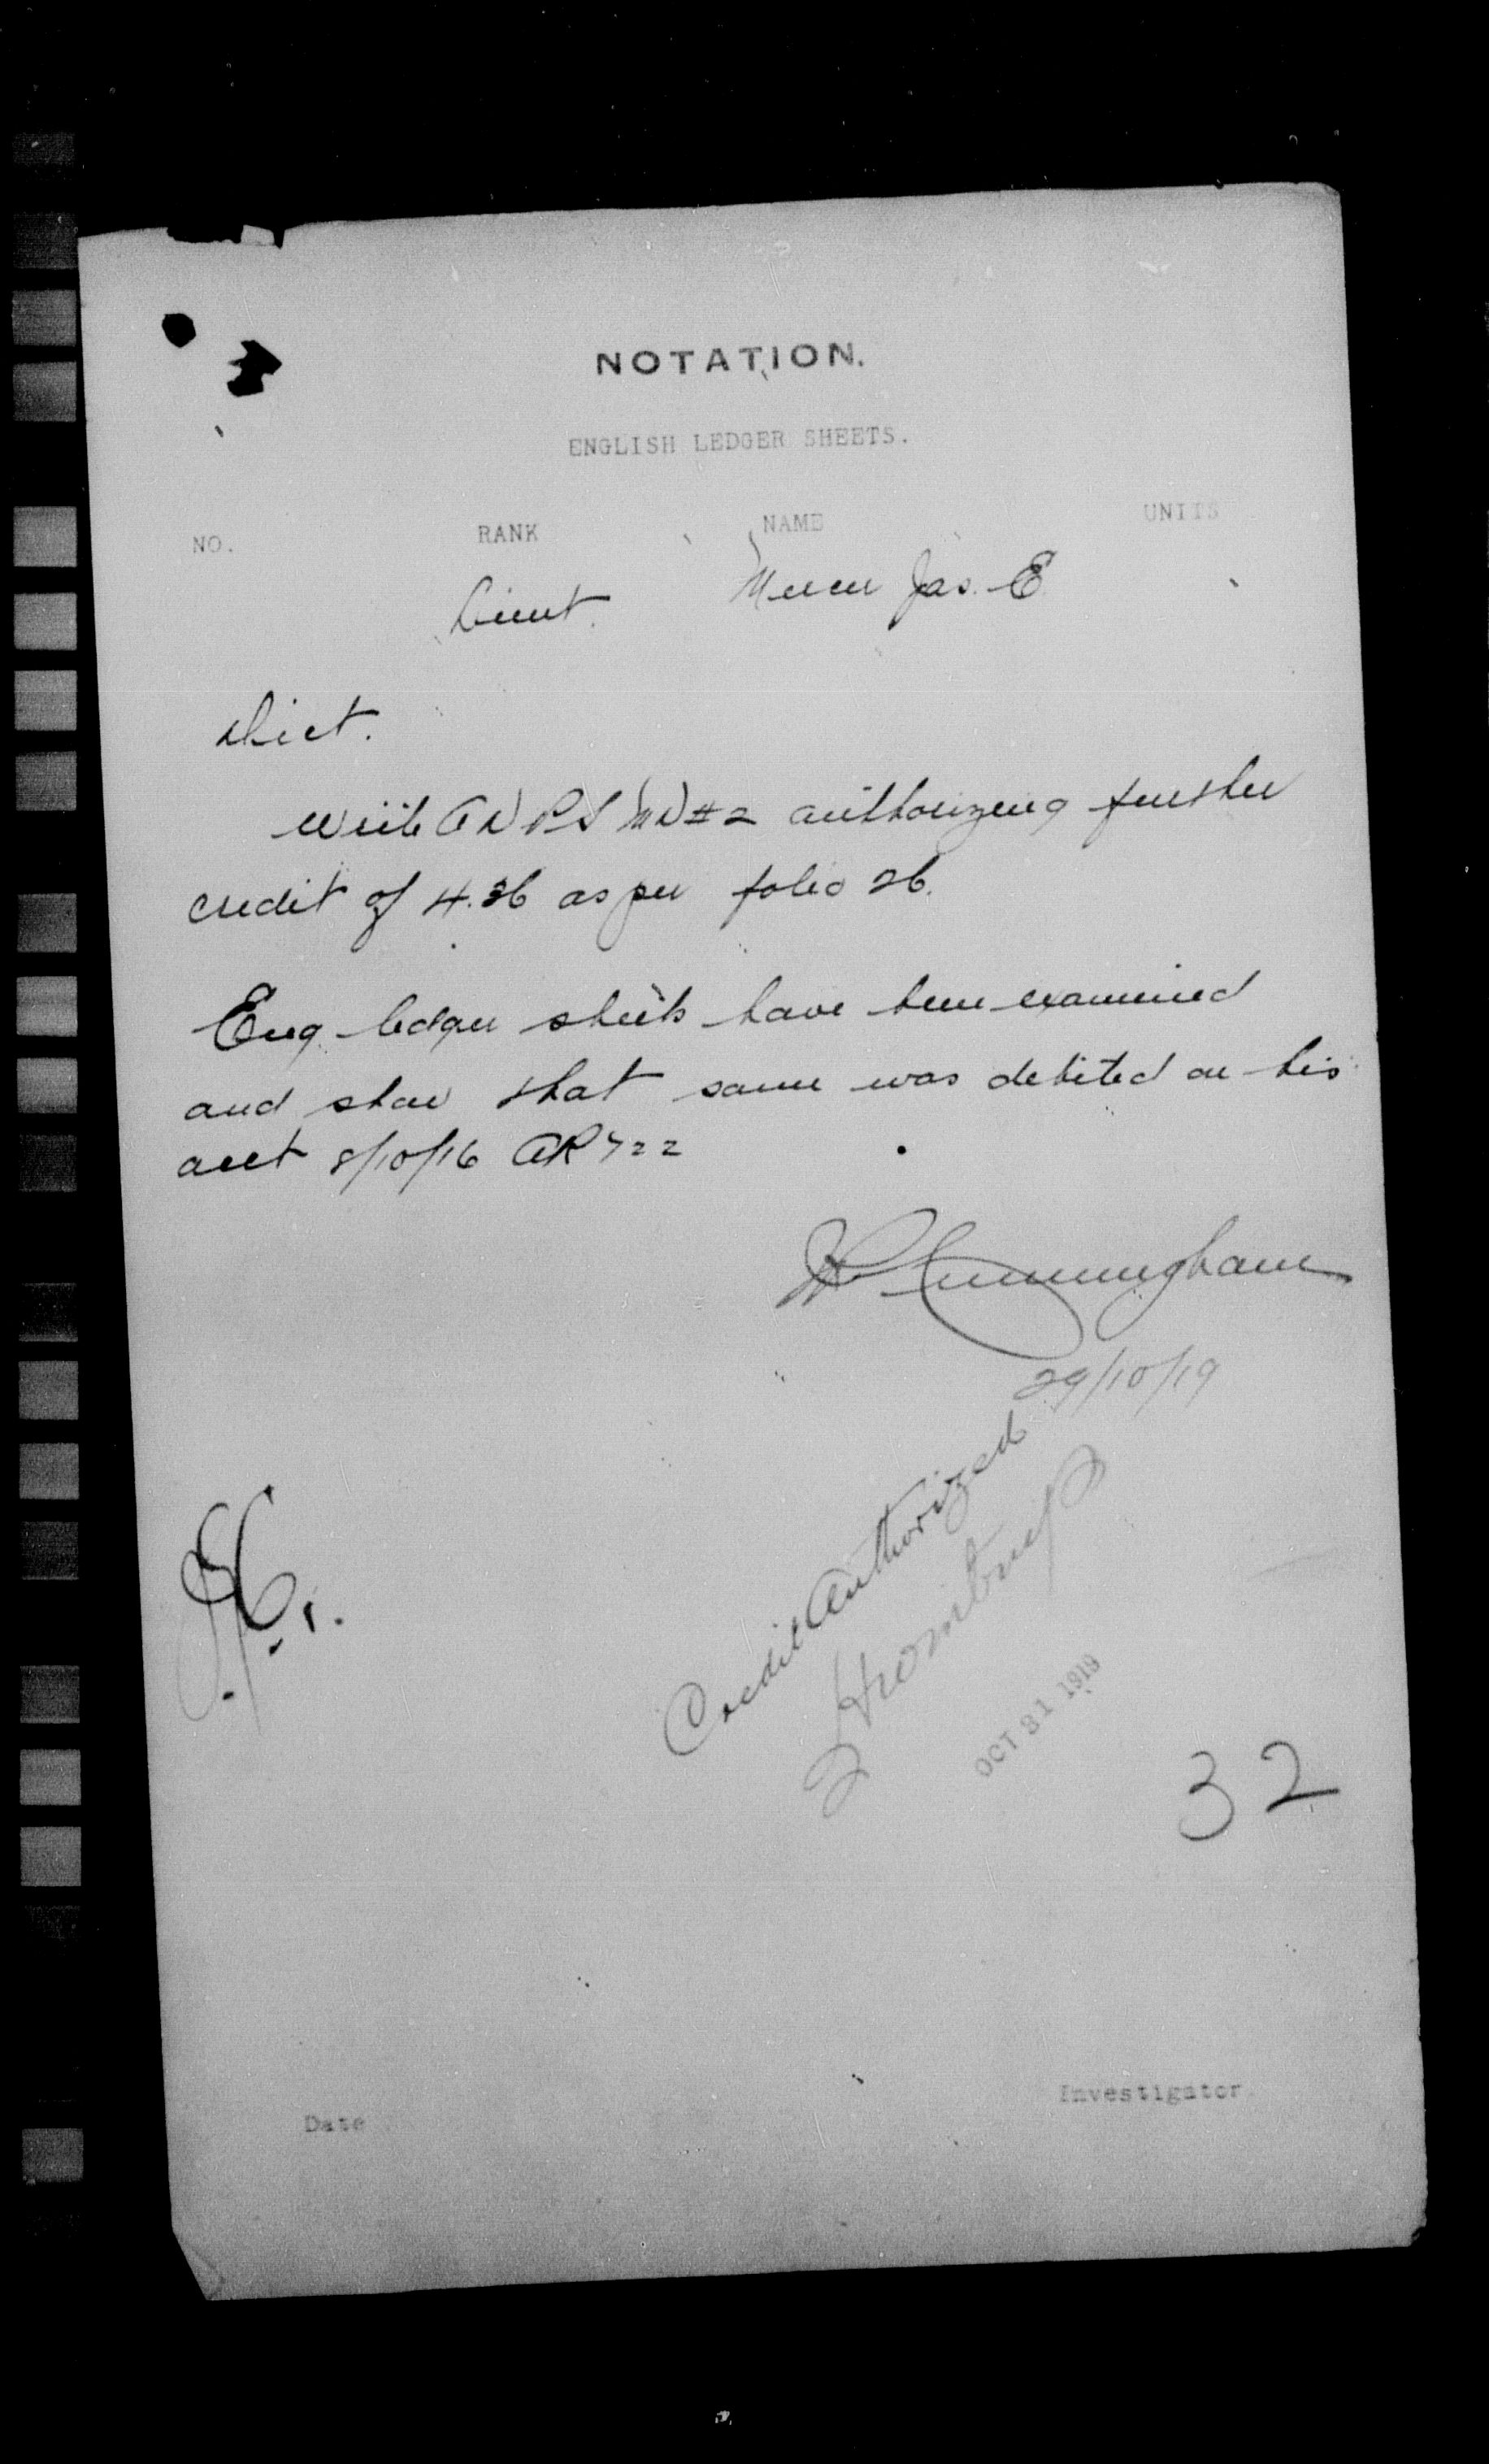 NOTATION.
ENGLISH LEDGER SHEETS.
NO. RANK NAME UNITS
Lieut. Jas. E
Dict.
Write A D P S M D #2 authorizing further
credit of 4.36 as per folio 26.
Eng. ledger sheets have been examined
and show that same was debited on his
acct 8/10/16 AR 722
Cunningham
29/10/19
Credit Authorized
OCT 31 1919
32
Date Investigator